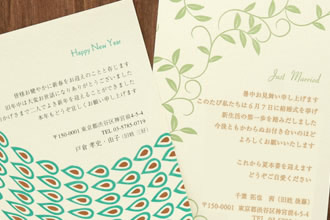 Happy New Year
皆様お健やかに新春をお迎えのことと存じます
旧年中は大変お世話になりありがとうございました
おかげさまで二人でよき新年を迎えることができました
本年もどうぞ宜しくお願い申し上げます
〒150-0001 東京都渋谷区神宮前4-5-4
TEL 03-5785-0719
戸倉 孝史・由子
Just Married
暑中お見舞い申し上げます
このたび私たちは6月7日に結婚式を挙げ
新生活の第一歩を踏みだしました
今後ともかわらぬお付き合いのほど
よろしくお願いいたします
これから夏本番を迎えます
どうぞご自愛ください
〒150-0001 東京都渋谷区神宮前4-5-4